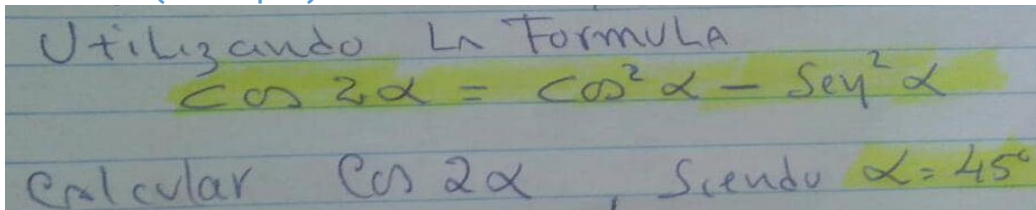 Utilizando La Formula
Cos 2α = Cos² α - Sen² α
Calcular Cos 2α, Siendo α = 45°